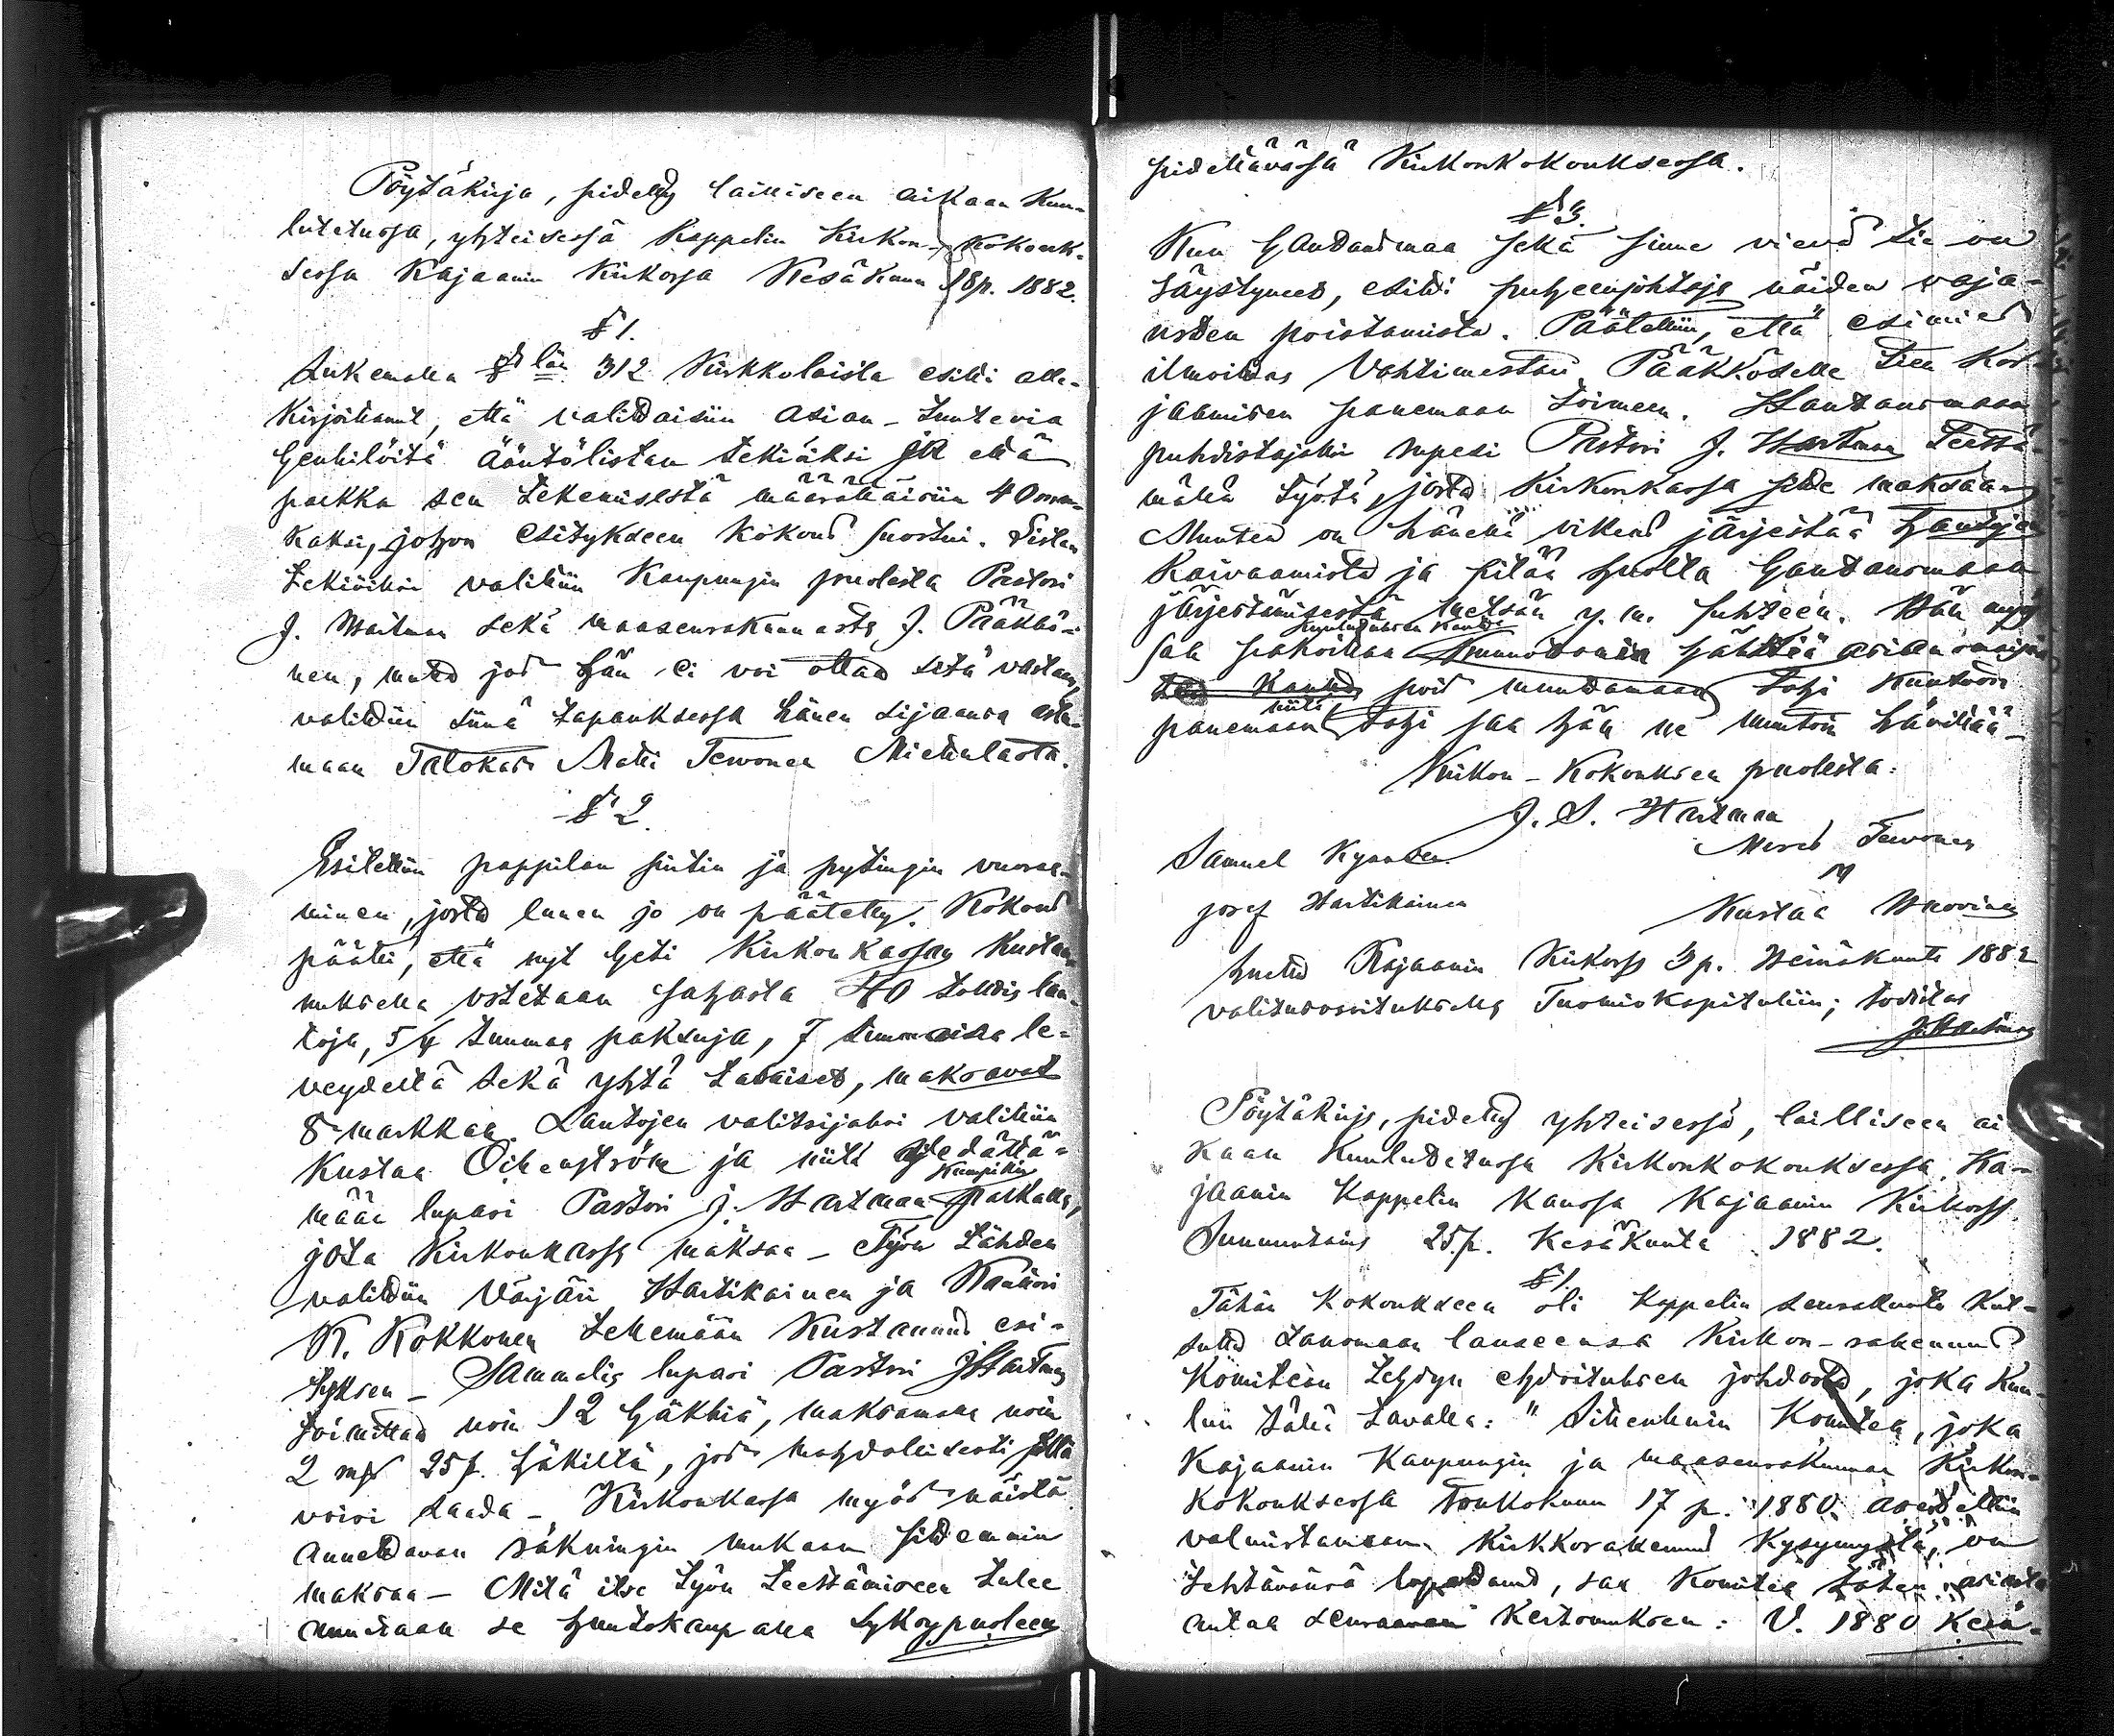 Pöytäkirja, pidetty lailliseen aikaan kuu-
lutetussa, yhteisessä Kappelin Kirkon-kokouk-
sessa Kajaanin Kirkossa Kesäkuun 18 p. 1882.
§ 1.
Lukemalla § län 312 Kirkkolaista esitti alle-
kirjoittanut, että valittaisiin asian-tuntevia
henkilöitä ääntölistan tekiäksi ja että
palkka sen tekemisestä määrättäisiin 40 mar-
kaksi, johon esitykseen kokous suostui. Listan
tekiöiksi valittiin Kaupungin puolesta Pastori
J. Hartman sekä maaseurakunnasta J. Pääkkö-
nen, mutta jos hän ei voi ottaa sitä vastaan,
valittiin siinä tapauksessa hänen sijaansa astu-
maan Talokas Matti Tervonen Mietulasta.
§ 2.
Esitettiin pappilan pirtin ja pytingin vuoraa-
minen, josta ennen jo on päätetty. Kokous
päätti, että nyt heti Kirkonkassan kustan-
nuksella ostetaan sahasta 40 toltia lau-
toja, 5/4 tuumaa paksuja, 7 tuumaisia le-
veydeltä sekä yhtä tasaiset, maksavat
8 markkaa. Lautojen valitsijaksi valittiin
Kustaa ja niitä
mään lupasi Pastori J. Hartman palkalla,
jota Kirkonkassa maksaa - Työn tähden
valittiin Värjäri Hartikainen ja Kanttori
K. Kokkonen tekemään kustannus esi-
tyksen - Sammalia lupasi Pastori J Hartman
toimittaa noin 12 häkkiä, maksamalla noin
2 mk 25 p. häkiltä, jos mahdollisesti sillä
voisi saada - Kirkonkassa myös näistä
annettavan räkningin mukaan sittemmin
maksaa - Mitä itse työn teettämiseen tulee
annetaan se huutokaupalla Syksypuoleen
pidettävässä Kirkonkokouksessa.
§ 3.
Kun Hautausmaa sekä sinne vievä tie on
räystyneet, esitti puheenjohtaja näiden vaja-
usten poistamista. Päätettiin, että esimies
ilmoittaa Vahtimestari Pääkköselle tien kor-
jaamisen panemaan toimeen. Hautausmaan
puhdistajaksi rupesi Pastori J. Hartman teettä-
mällä työtä, josta Kirkonkassa sitte maksaa.
Muuten on hänellä oikeus järjestää hautojen
kaivaamista ja pitää huolta Hautausmaan
järjestämisestä metsän y. m. suhteen. Hän myös
kuulutuksen kautta
saa pakoittaa hähtiä asianomaisia
pois muuttamaan tahi kuntoon
niitä
panemaan tahi saa hän ne muutoin hävittää -
Kirkon-Kokouksen puolesta:
J. S. Hartman
Samuel Kyander Tervonen
Josef Hartikainen
Kustaa Huovinen
Luettu Kajaanin Kirkossa 3 p. Heinäkuuta 1882
valitusosoituksella Tuomiokapituliin; todistaa
J. Hartman
Pöytäkirja, pidetty yhteisessä, lailliseen ai-
kaan Kuulutetussa Kirkonkokouksessa Ka-
jaanin Kappelin kanssa Kajaanin Kirkossa
Sunnuntaina 25 p. Kesäkuuta 1882.
§ 1.
Tähän Kokoukseen oli Kappelin seurakunta kut-
suttu sanomaan lauseensa Kirkon-rakennus
Komitean tehdyn ehdoituksen johdosta, joka kuu-
luu tällä tavalla: " Sittenkuin Komitea, joka
Kajaanin Kaupungin ja maaseurakunnan Kirkon-
kokouksessa Toukokuun 17 p. 1880 asetettiin
valmistamaan Kirkkorakennus kysymystä, on
tehtävänsä lopettanut, saa Komitea tästä asiasta
antaa seuraavan kertomuksen: V. 1880 Kesä-